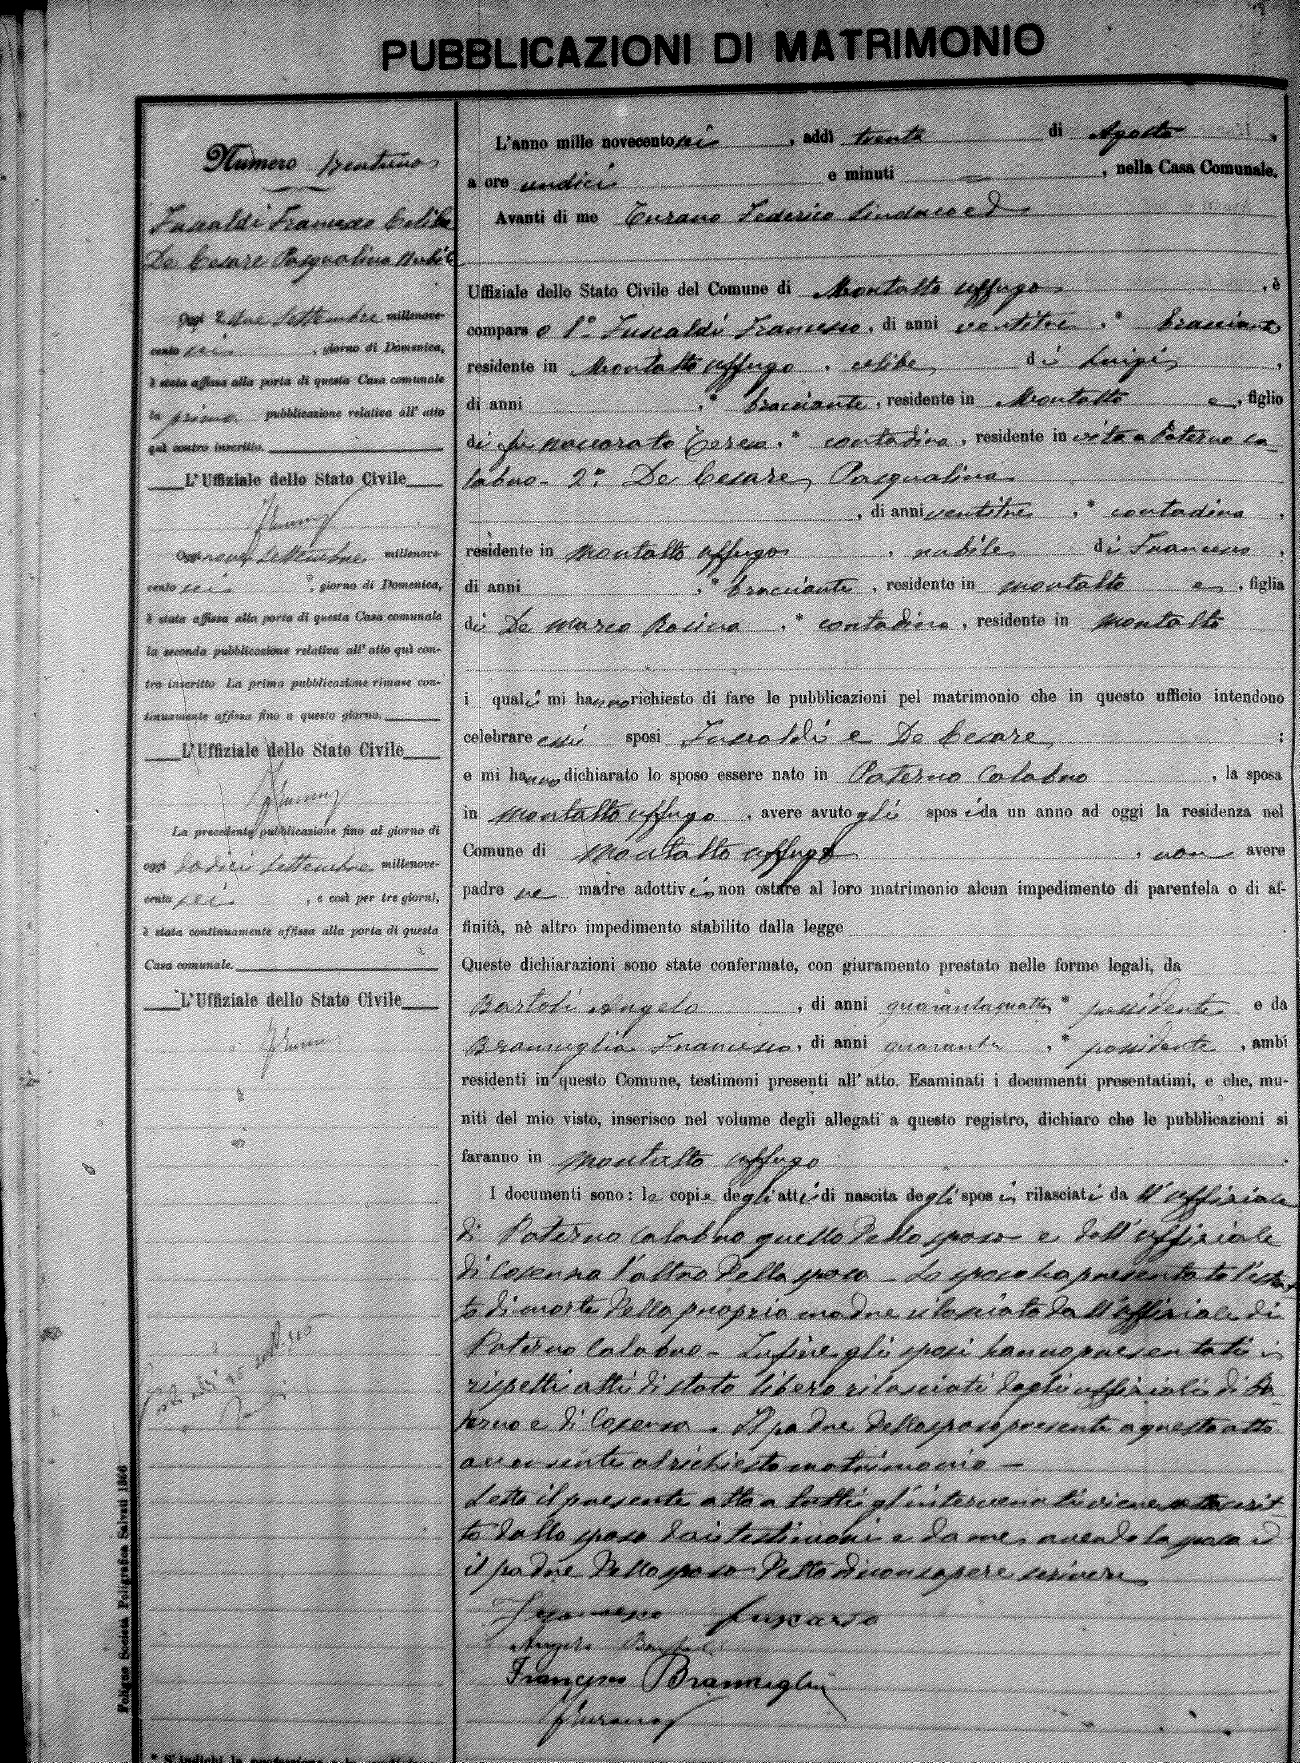 PUBBLICAZIONI DI MATRIMONIO
Numero trentuno
Fuscaldi Francesco Celibe
De Cesare Pasqualina Nubile
Oggi 2 due Settembre millenove-
cento sei, giorno di Domenica,
è stata affissa alla porta di questa Casa comunale
la prima pubblicazione relativa all' atto
quì contro inscritto.
L'Uffiziale dello Stato Civile
FTurano
Oggi nove Settembre millenove-
cento sei, giorno di Domenica,
è stata affissa alla porta di questa Casa comunale
la seconda pubblicazione relativa all' atto quì con-
tro inscritto. La prima pubblicazione rimase con-
tinuamente affissa fino a questo giorno.
L'Uffiziale dello Stato Civile
FTurano
La precedente pubblicazione fino al giorno di
oggi dodici Settembre millenove-
cento sei, e così per tre giorni,
è stata continuamente affissa alla porta di questa
Casa comunale.
L'Uffiziale dello Stato Civile
FTurano
Foligno Società Poligrafica Salvati
L'anno mille novecento sei, addì trenta di Agosto,
a ore undici e minuti —, nella Casa Comunale.
Avanti di me Turano Federico Sindaco ed
Uffiziale dello Stato Civile del Comune di Montalto Uffugo, è
comparso 1.º Fuscaldi Francesco, di anni ventitre, * bracciante
residente in Montalto Uffugo, celibe di Luigi,
di anni , * bracciante, residente in Montalto e, figlio
di fu Naccarato Teresa, * contadina, residente in vita a Paterno Ca
labro - 2º De Cesare Pasqualina
, di anni ventitre, * contadina,
residente in Montalto Uffugo, nubile di Francesco,
di anni , * bracciante, residente in Montalto e, figlia
di De Marco Rosina, * contadina, residente in Montalto
i quali mi hanno richiesto di fare le pubblicazioni pel matrimonio che in questo ufficio intendono
celebrare essi sposi Fuscaldi e De Cesare;
e mi hanno dichiarato lo sposo essere nato in Paterno Calabro, la sposa
in Montalto Uffugo, avere avuto gli sposi da un anno ad oggi la residenza nel
Comune di Montalto Uffugo, non avere
padre ne madre adottivi non ostare al loro matrimonio alcun impedimento di parentela o di af-
finità, nè altro impedimento stabilito dalla legge
Queste dichiarazioni sono state confermate, con giuramento prestato nelle forme legali, da
Bartoli Angelo, di anni quarantaquattro * possidente e da
Bramuglia Francesco, di anni quaranta, * possidente, ambi
residenti in questo Comune, testimoni presenti all' atto. Esaminati i documenti presentatimi, e che, mu-
niti del mio visto, inserisco nel volume degli allegati a questo registro, dichiaro che le pubblicazioni si
faranno in Montalto Uffugo.
I documenti sono: le copie degli atti di nascita degli sposi rilasciati da ll'uffiziale
di Paterno Calabro quello dello sposo e dall'uffiziale
di Cosenza l'altro della sposa - Lo sposo ha presentato l'estrat
to di morte della propria madre rilasciato dall'uffiziale di
Paterno Calabro - Infine gli sposi hanno presentati i
rispetti atti di stato libero rilasciati dagli uffiziali di Pa
terno e di Cosenza. Il padre dello sposo presente a questo atto
acconsente al richiesto matrimonio -
Letto il presente atto a tutti gl'intervenuti viene sottoscrit
to dallo sposo dai testimoni e da me, avendo la sposa ed
il padre dello sposo detto di non sapere scrivere
Francesco Fuscardo
Angelo Bartoli
Francesco Bramuglia
FTurano